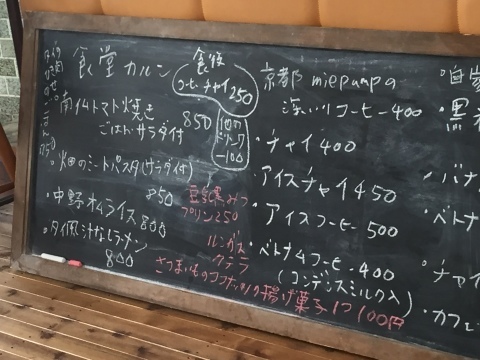 食堂カルン
食後
コーヒーチャイ250
他の
ドリンク
-100
南仏トマト焼き 850
ごはん・サラダ付
・畑のミートパスタ(サラダ付)
850
・中野オムライス800
汁なしラーメン
800
プリン250
ルンガス
クテラ
さつまいもココナッツ揚げ菓子1つ100円
京都 miepumpa
深いりコーヒー400
・チャイ400
・アイスチャイ450
・アイスコーヒー500
・ベトナムコーヒー400
(コンデンスミルク入)
・自家
・黒
・バナ
・ベト
・チャイ
・カフェ